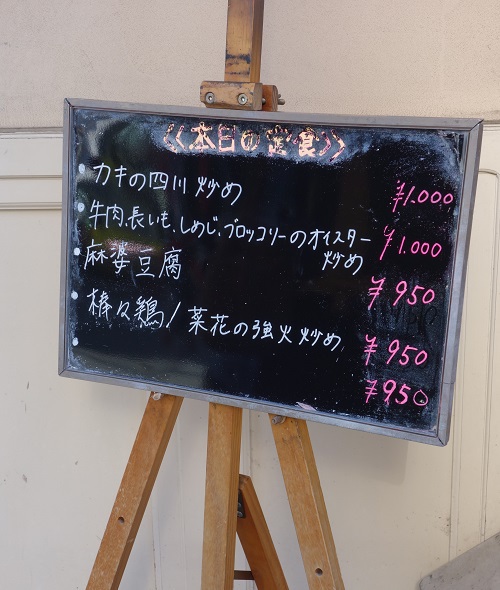 《本日の定食》
・カキの四川炒め ¥1.000
・牛肉、長いも、しめじ、ブロッコリーのオイスター
炒め ¥1.000
・麻婆豆腐 ¥950
・棒々鶏/菜花の強火炒め ¥950
・ ¥950